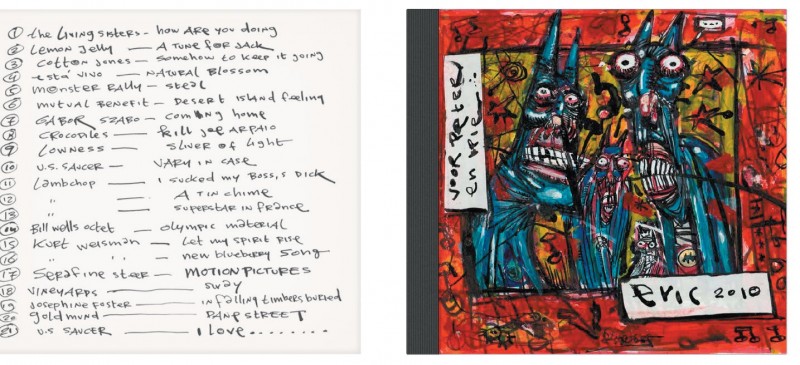 1 the Living Sisters - how ARE you doing
2 Lemon Jelly — A TUNE FOR JACK
3 COTTON JONES - somehow to keep it going
4 està VIVO — NATURAL BLOSSOM
5 MONSTER RALLY - STEAL
6 MUTUAL BENEFIT - DESERT ISLAND feeling
7 GABOR SZABO - coming home
8 CROCODILES — kill joe ARPAIO
9 LOWNESS — SLIVER OF light
10 U.S. SAUCER — VARY IN CASE
11 Lambchop — I sucked my BOSS,S DICK
12 " — A TIN chime
13 " — SUPERSTAR IN FRANCE
14 Bill wells octet — olympic material
15 KURT weisman — Let my SPIRIT RISE
16 " " — new blueberry song
17 Serafine steer — MOTION PICTURES
18 VINEYARDS — SWAY
19 Josephine FOSTER — in falling timbers buried
20 gold mund — PANP STREET
21 U.S SAUCER — I love........
VOOR PETER
en
eric 2010